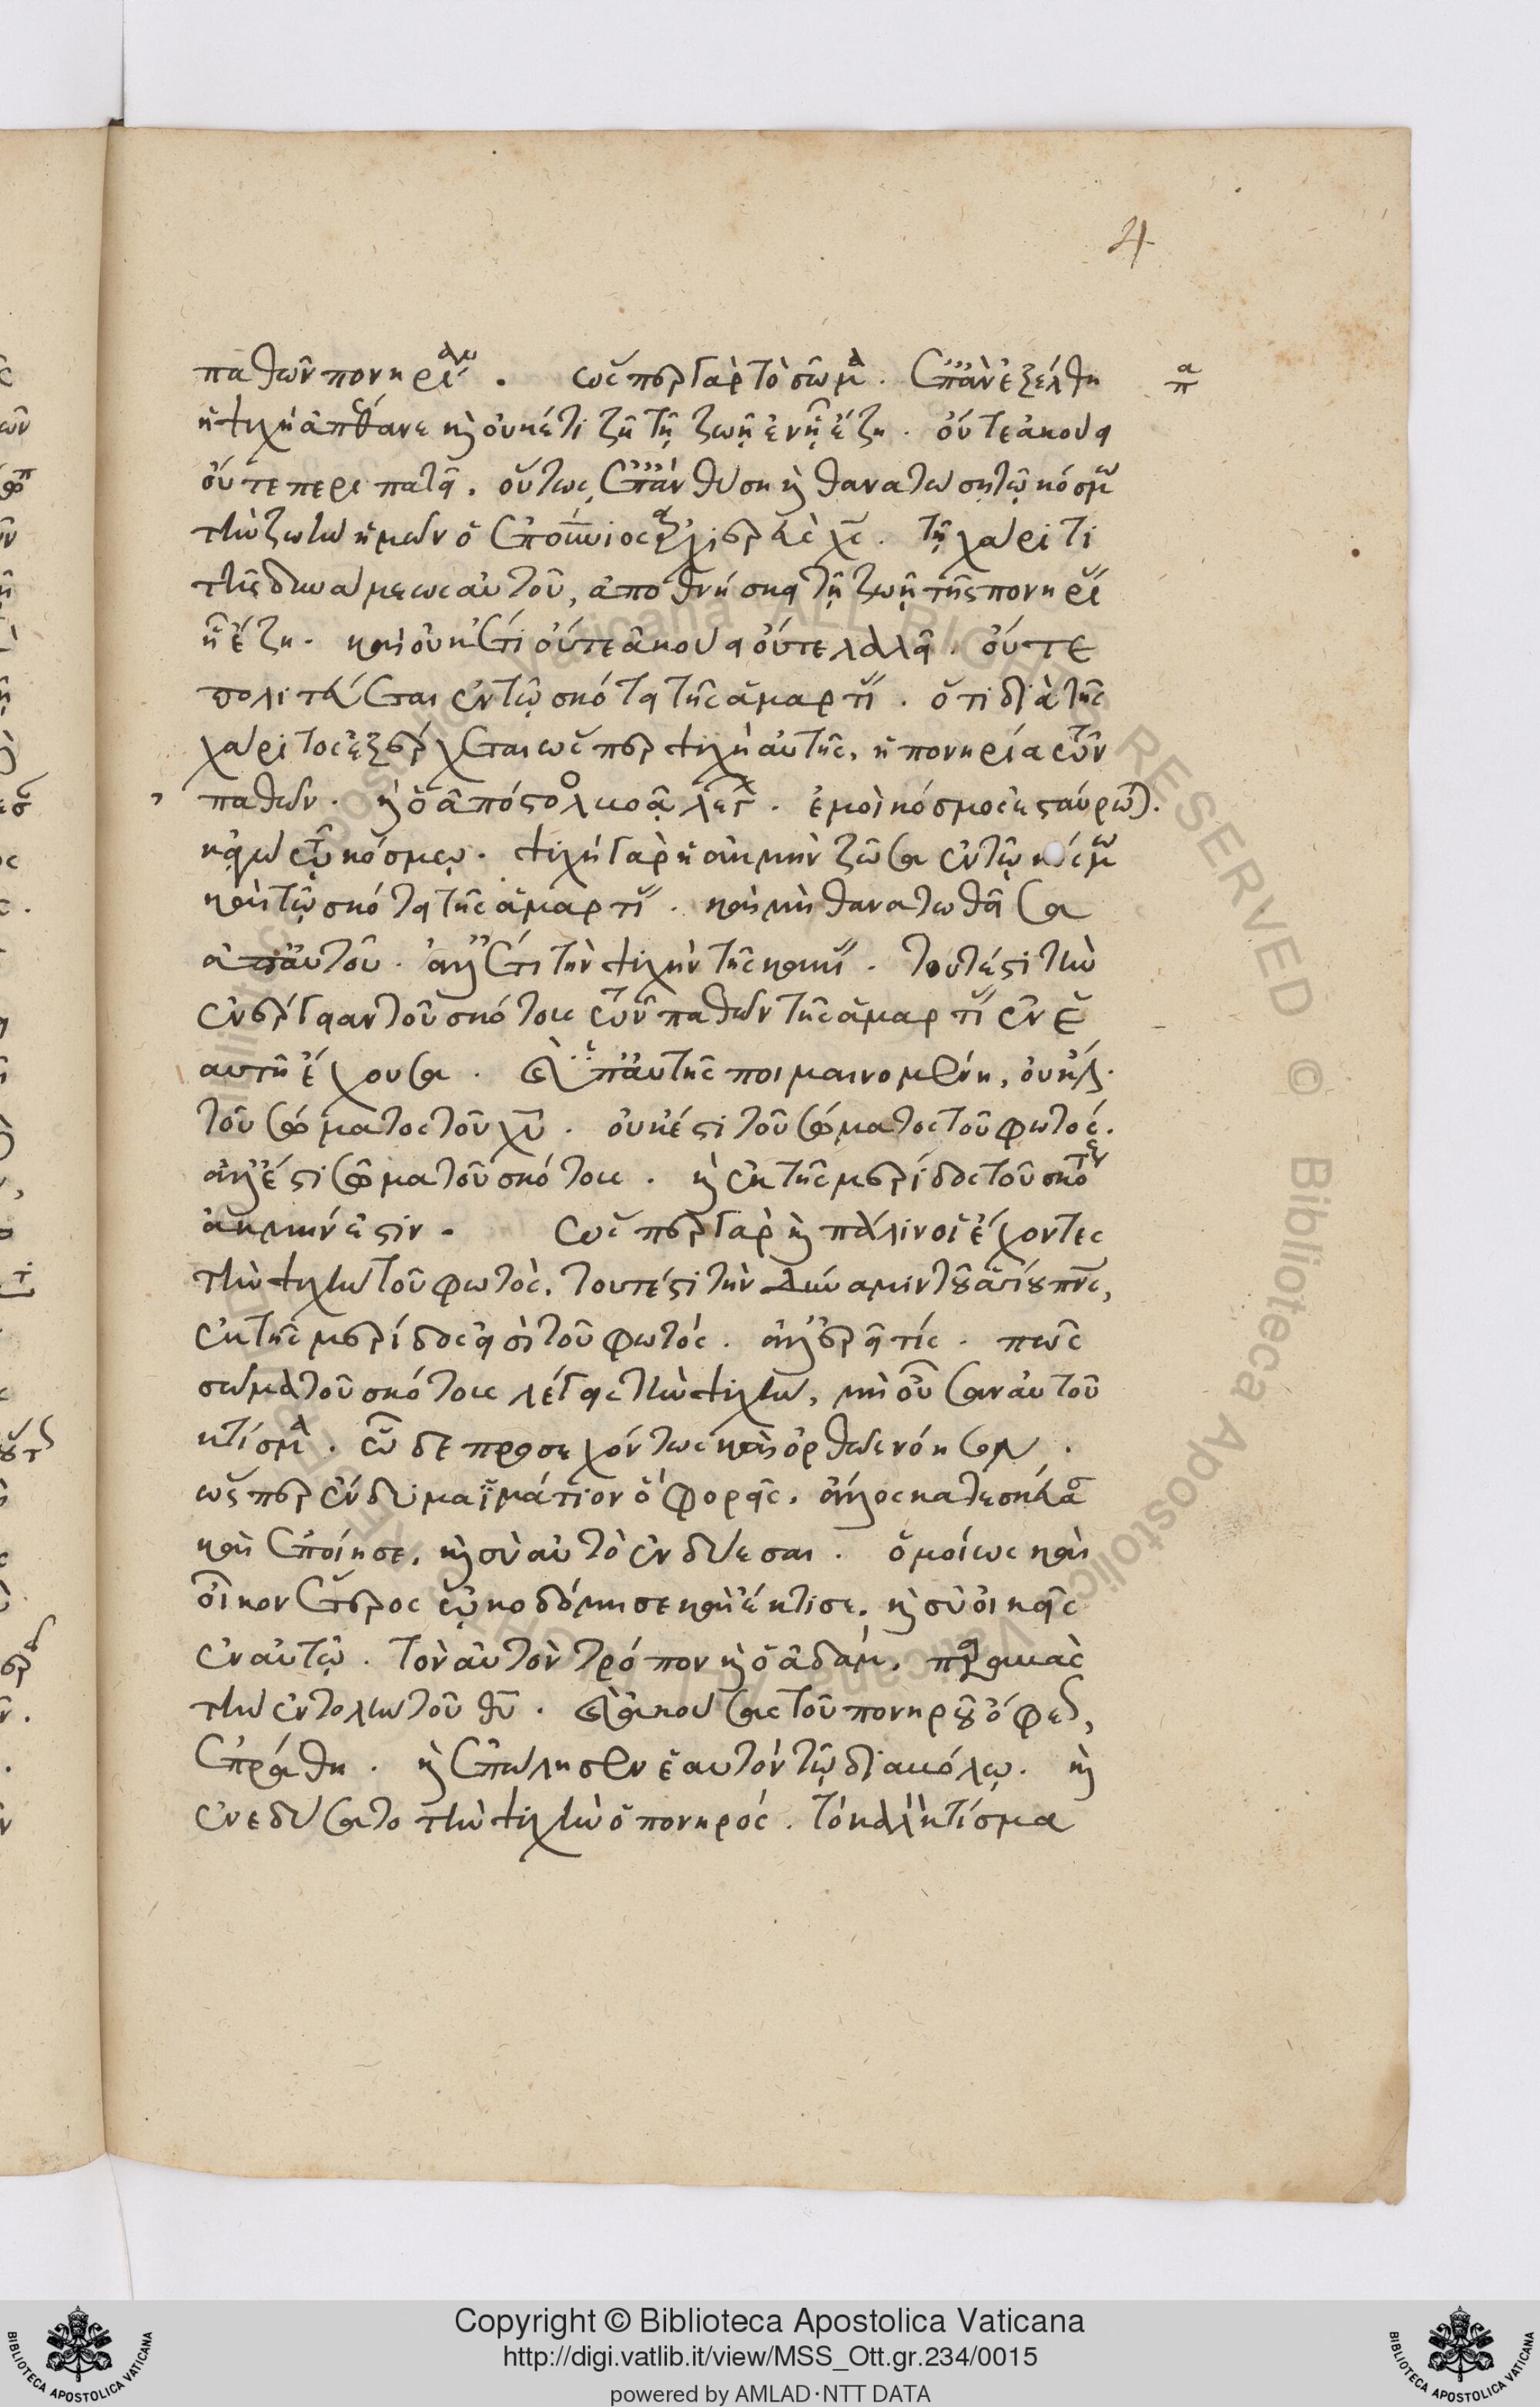 4
παθῶν πονηρίαν. ὥσπερ γὰρ τὸ σῶμα. ἐπὰν ἐξέλθη
ἡ ψυχὴ ἀπέθανε καὶ οὐκέτι ζῆ τῆ ζωῆ ἐν ἧ ἔζη. οὔτε ἀκούει
οὔτε περιπατεῖ. οὕτως, ἐπὰν θύση καὶ θανατώση τῶ κόσμω
τὴν ζωὴν ἡμῶν ὁ ἐπουράνιος ἀρχιερεὺς χς. τῆ χάριτι
τῆς δυνάμεως αὐτοῦ, ἀποθνήσκει τῆ ζωῆ τῆς πονηρίας
ἧ ἔζη. καὶ οὐκέτι οὔτε ἀκούει οὔτε λαλεῖ. οὔτε
πολιτεύεται ἐν τῶ σκότει τῆς ἁμαρτίας. ὅτι διὰ τῆς
χάριτος ἐξέρχεται ὥσπερ ψυχὴ αὐτῆς, ἡ πονηρία τῶν
παθῶν. καὶ ὁ ἀπόστολος λέγει. ἐμοὶ κόσμος ἐσταύρωται.
κἀγὼ τῶ κόσμω. ψυχὴ γὰρ ἡ ἀκμὴν ζῶσα ἐν τῶ κόσμω
καὶ τῶ σκότει τῆς ἁμαρτίας. καὶ μὴ θανατωθεῖσα
ἀπ' αὐτοῦ. ἀλλ' ἔτι τὴν ψυχὴν τῆς κακίας. τουτέστι τὴν
ἐνέργειαν τοῦ σκότους τῶν παθῶν τῆς ἁμαρτίας ἐν ἑ
αυτῆ ἔχουσα. καὶ ὑπ' αὐτῆς ποιμαινομένη, οὐκ ἔστι
τοῦ σώματος τοῦ χυ. οὐκ ἔστι τοῦ σώματος τοῦ φωτός.
ἀλλ' ἔστι σῶμα τοῦ σκότους. καὶ ἐκ τῆς μερίδος τοῦ σκότους
ἀκμήν ἐστιν. ὥσπερ γὰρ καὶ πάλιν οἱ ἔχοντες
τὴν ψυχὴν τοῦ φωτὸς. τουτέστι τὴν δύναμιν τοῦ ἁγίου πνς,
ἐκ τῆς μερίδος εἰσὶ τοῦ φωτός. ἀλλ' ἐρεῖ τίς. πῶς
σῶμα τοῦ σκότους λέγεις τὴν ψυχὴν, μὴ οὖσαν αὐτοῦ
κτίσμα. ὧδε προσεχόντως καὶ ὀρθῶς νόησον.
ὥσπερ ἔνδυμα ἱμάτιον ὃ φορεῖς. ἄλλος κατεσκεύασε
καὶ ἐποίησε, καὶ σὺ αὐτὸ ἐνδύεσαι. ὁμοίως καὶ
οἶκον ἕτερος ὠκοδόμησε καὶ ἔκτισε, καὶ σὺ οἰκεῖς
ἐν αὐτῶ. τὸν αὐτὸν τρόπον καὶ ὁ ἀδάμ, παραβὰς
τὴν ἐντολὴν τοῦ θυ. καὶ ἀκούσας τοῦ πονηροῦ ὄφεως,
ἐπράθη. καὶ ἐπώλησεν ἑαυτὸν τῶ διαβόλω. καὶ
ἐνεδύσατο τὴν ψυχὴν ὁ πονηρός. τὸ καλὸν κτίσμα
Copyright © Biblioteca Apostolica Vaticana
http://digi.vatlib.it/view/MSS_Ott.gr.234/0015
powered by AMLAD·NTT DATA